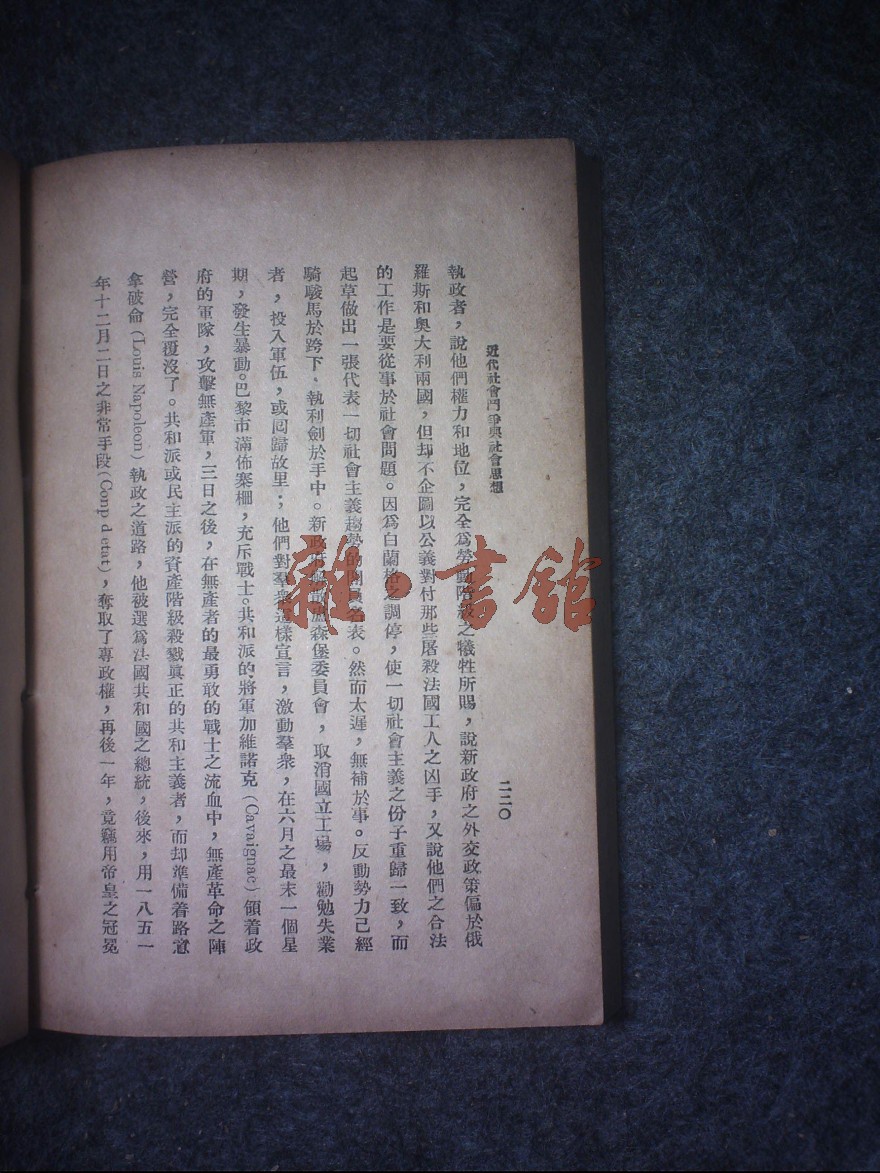 近代社會鬥爭與社會思想
二二〇
執政者，說他們權力和地位，完全爲勞動階級之犧牲所賜，說新政府之外交政策偏於俄
羅斯和奧大利兩國，但却不企圖以公義對付那些屠殺法國工人之凶手，又說他們之合法
的工作是要從事於社會問題。因爲白蘭格之調停，使一切社會主義之份子重歸一致，而
起草做出一張代表一切社會主義趨勢的名表。然而太遲，無補於事。反動勢力己經
騎駿馬於跨下、執利劍於手中。新政府森堡委員會，取消國立工場，勸勉失業
者，投入軍伍，或囘歸故里；他們對羣衆這樣宣言，激動羣衆，在六月之最末一個星
期，發生暴動。巴黎市滿佈寨柵，充斥戰士。共和派的將軍加維諾克(Cavaignac)領着政
府的軍隊，攻擊無產軍，三日之後，在無產者的最勇敢的戰士之流血中，無產革命之陣
營，完全覆沒了。共和派或民主派的資產階級殺戮眞正的共和主義者，而却準備着路意
拿破侖(Louis Napoleon)執政之道路，他被選爲法國共和國之總統，後來，用一八五一
年十二月二日之非常手段(Conp d etat)，奪取了專政權，再後一年，竟竊用帝皇之冠冕
雜·書館